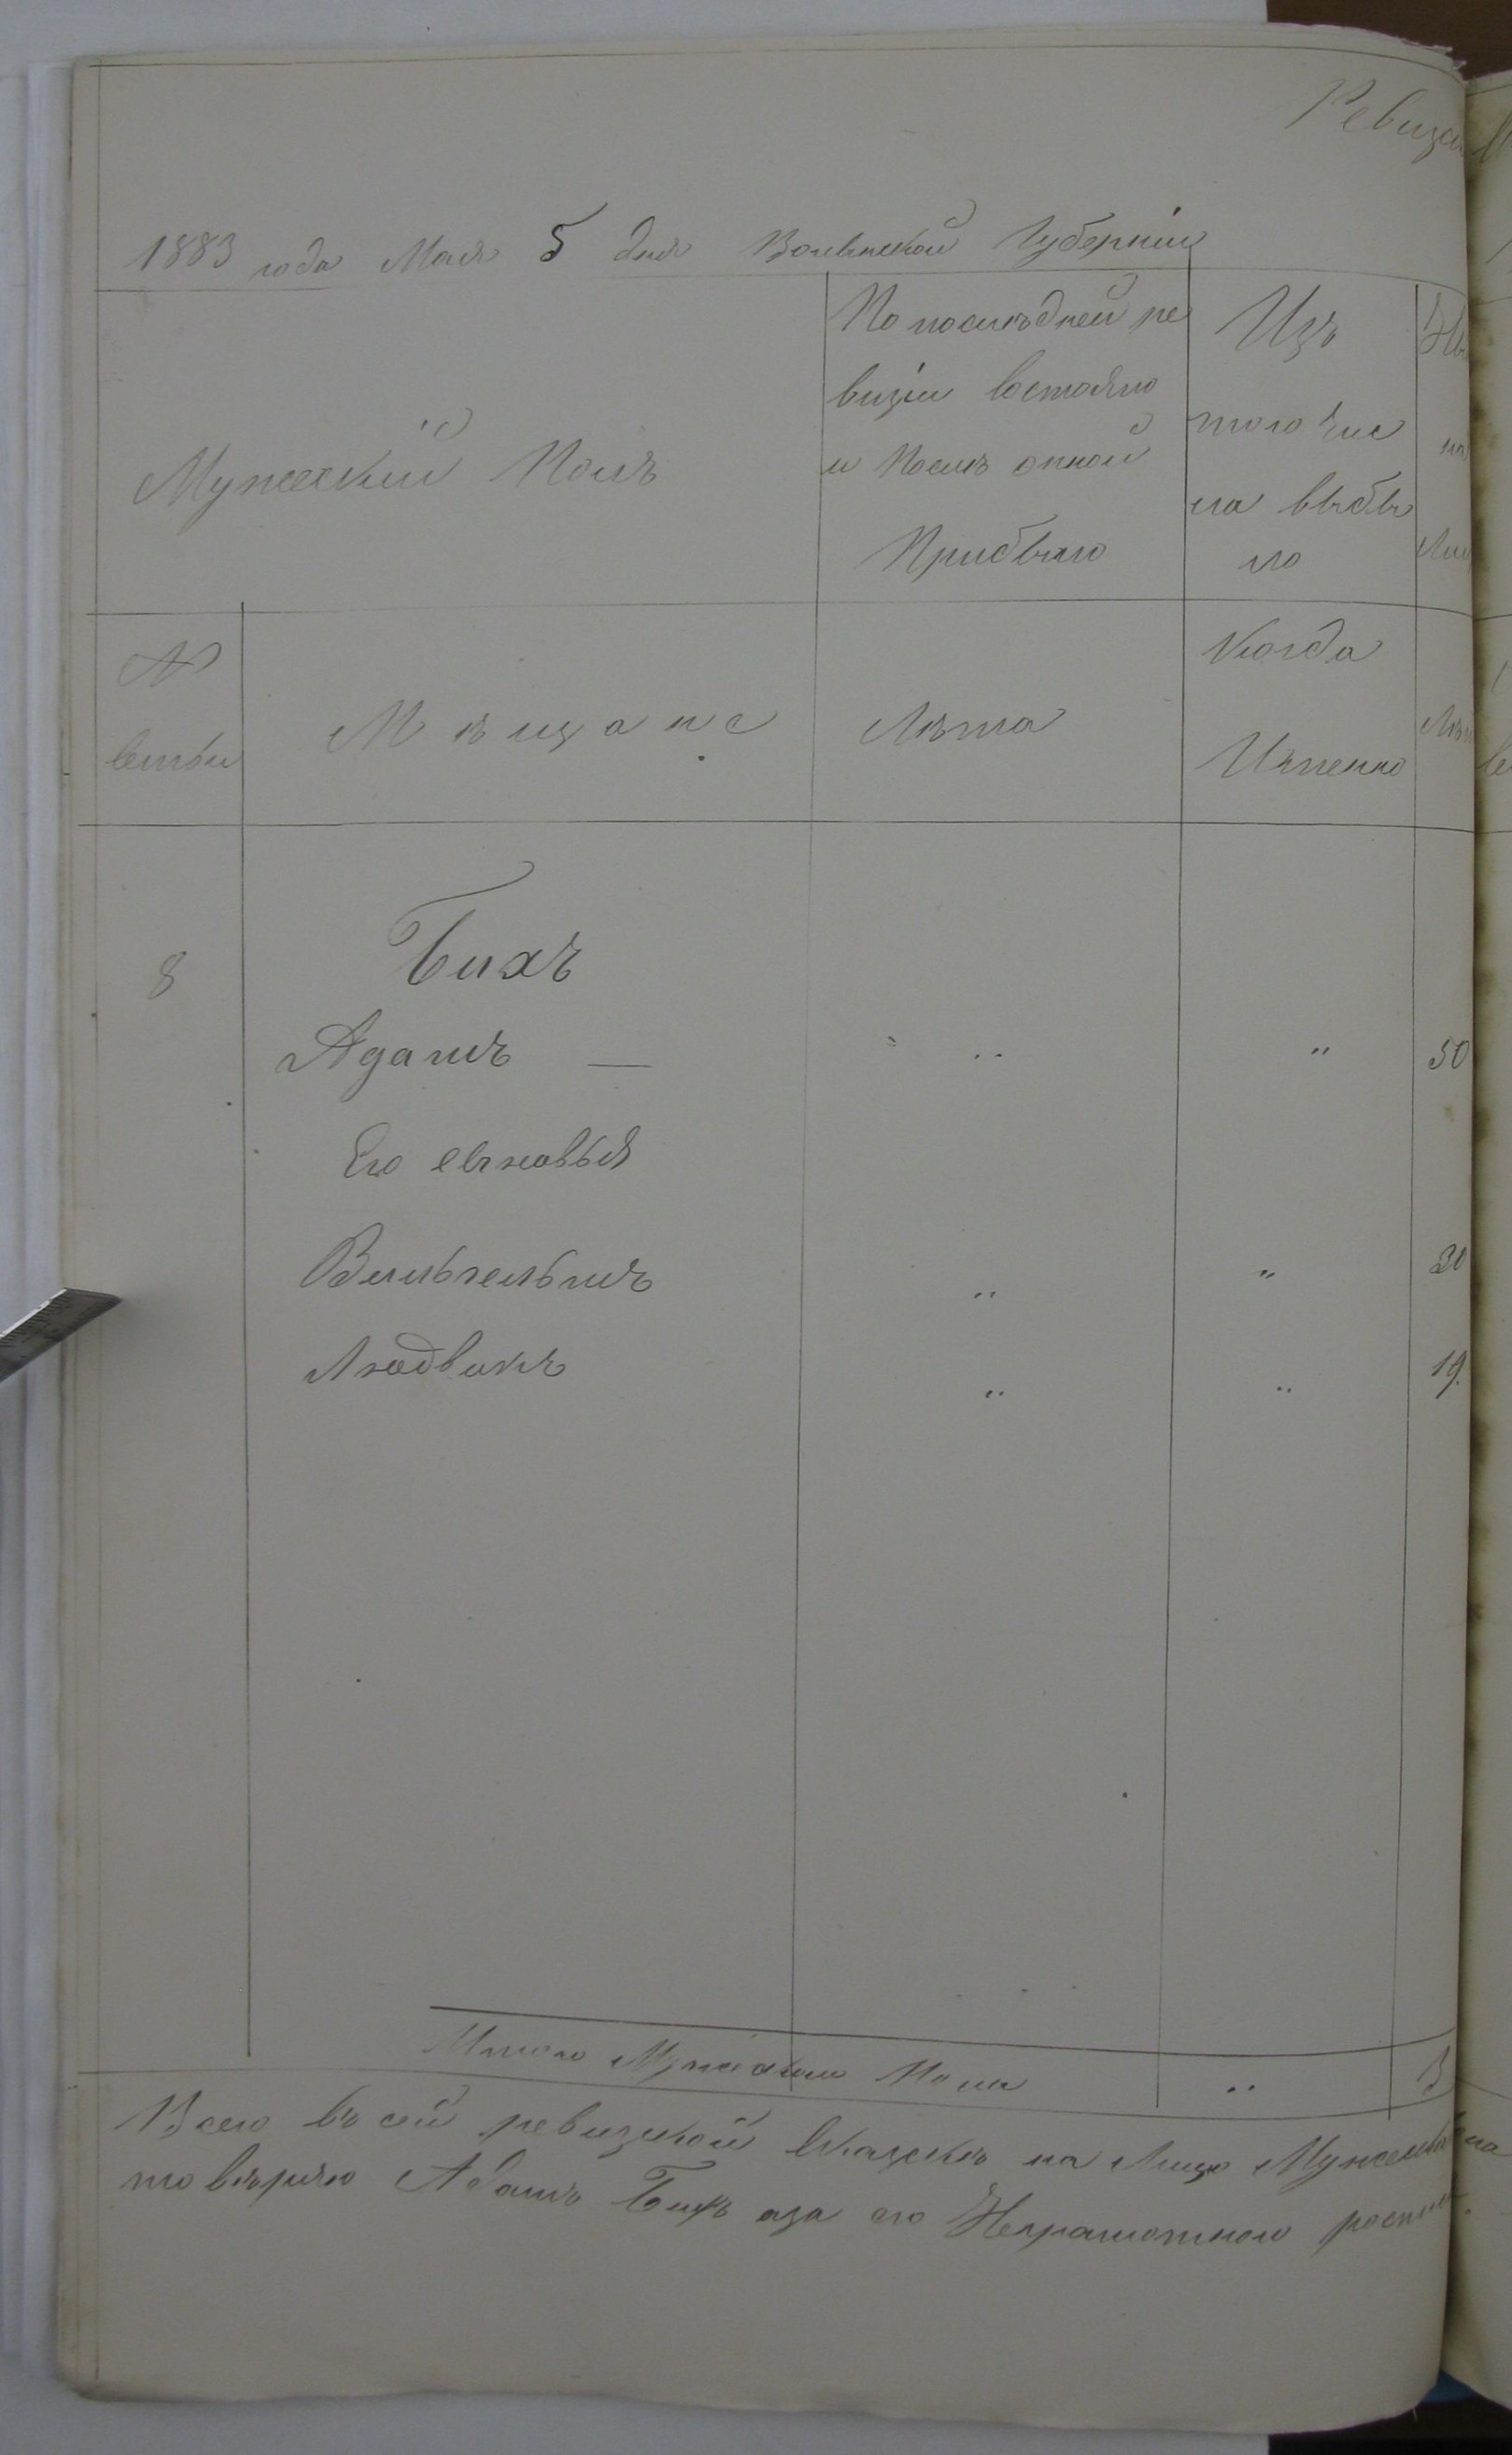 Ревизс
1883 года Мая 5 дня Волынской Губерніи
Мужескій Полъ
По послѣдней ре
визіи состояло
и послѣ онной
Прибыло
Изъ
того чис
ла выбы
ло
№
семьи
Мѣщане
Лѣта
Когда
Именно
8
Бихъ
Адамъ — " " 50
Его сыновья
Вильгельмъ " " 20
Людвикъ " " 19.
Итого Мужеска Пола " 3
Всего въ сей ревизкой сказскѣ на лицо Мужеска
то вѣрно Адамъ Бихъ аза его Неграмотного роспис